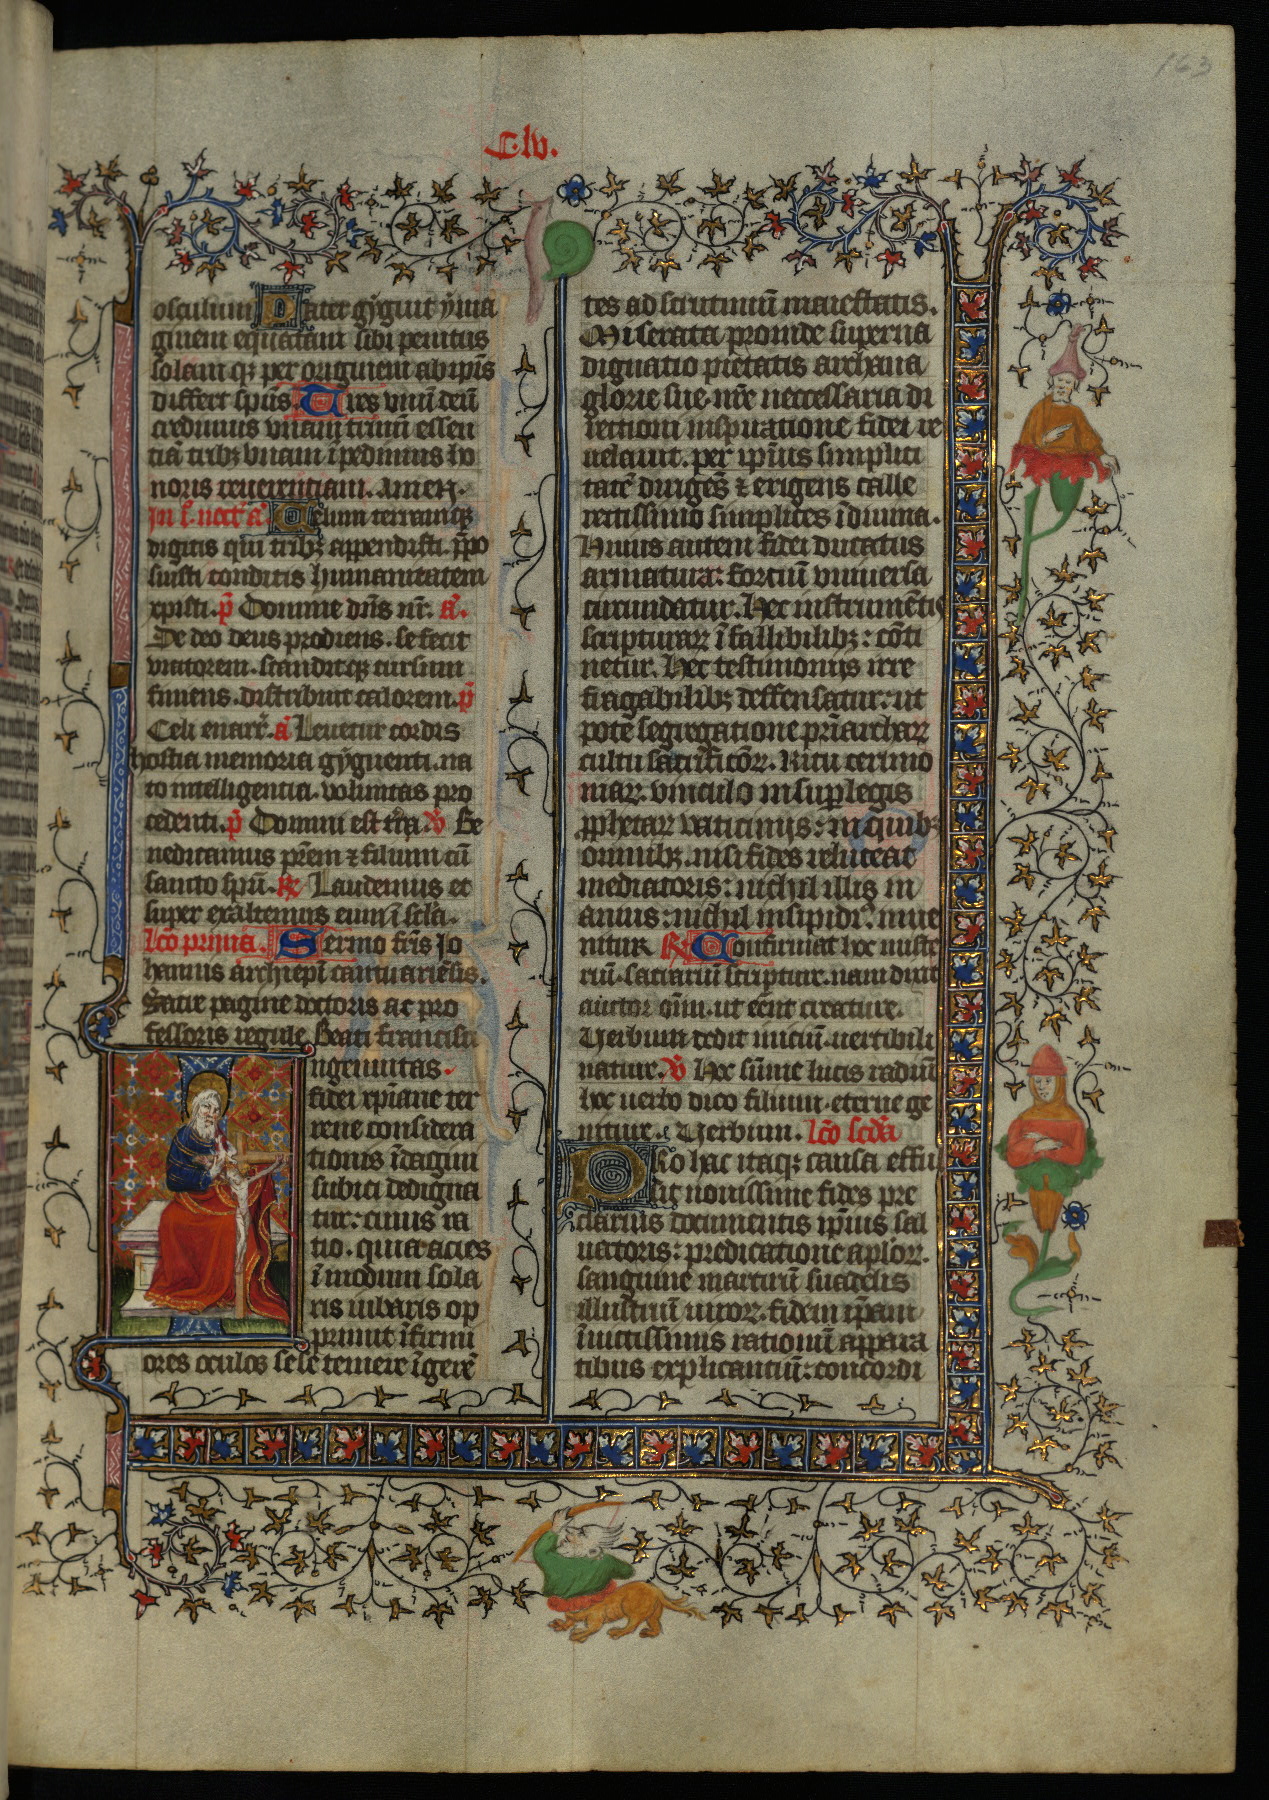 163
C.lv.
osculum Pater gignit yma
ginem equatam sibi penitus
solam qz per originem ab ipīs
differt spūs Tres vnū deū
credimus vnam triū essen
tiā tribz vnam ipedimus ho
noris reuerentiam. Amen.
In .i. noct̄ a Celum terramqz
digitis qui tribz appendisti. ppo
suisti conditis humanitatem
xpisti. p̄ Domine dn̄s nr̄. a.
De deo deus prodiens. se fecit
viatorem. scanditqz cursum
finiens. distribuit calorem. p̄
Celi enarr̄. a Leuetur cordis
hostia memoria gignenti. na
to intelligentia. voluntas pro
cedenti. p̄ Domini est tr̄a. v̄ Be
nedicamus pr̄em z filium cū
sancto spū. R̄ Laudemus et
super exaltemus eum ī scl̄a.
lc̄o prima. Sermo fr̄is Jo
hannis archiepī cantuariēsis.
Sacre pagine doctoris ac pro
fessoris regule Beati francisci
Ingenuitas.
fidei xpiane ter
rene considera
tionis idagini
subici dedigna
tur: cuius ra
tio. quia acies
i modum sola
ris iubaris op
primit ifirmi
ores oculos sese temere igerē
tes ad scrutiniū maiestatis.
Miserata proinde superna
dignatio pietatis archana
glorie sue. nr̄e neccessaria di
rectioni inspiratione fidei re
uelauit. per ip̄ius simplici
tatē dirigēs z erigens calle
rectissimo simplices i diuina.
Huius autem fidei ducatus
armatura: fortiū vniuersa
circundatur. Hec instrumētis
scripturaꝝ ifallibilibz: cōti
netur. Hec testimonijs irre
fragabilibz deffensatur: ut
potē segregatione priarchaꝝ
cultu sacrificōꝝ. Ritu cerimo
niaꝝ. vinculo insup legis
pphetaꝝ vaticinijs: in quibz
omnibz. nisi fides reluceat
mediatoris: nichil illis in
anius: nichil insipidi. inue
nitur R̄ Confirmat hoc miste
riū. sacrariū scripture. nam dixit
auctor om̄iū. ut eēnt creature.
Verbum dedit iniciū. uertibili
nature. v̄ Hec sūme lucis radiū
hoc uerbo dico filium. eterne ge
niture. Verbum. lc̄o sc̄da
Pro hac itaqz causa effu
sit nouissime fides pre
clarius documentis ip̄ius sal
uatoris: predicatione apl̄oꝝ.
sanguine martirū succelis
illustriū uiroꝝ. fidem ip̄am
inuictissimis rationū appara
tibus explicantiū: concordi